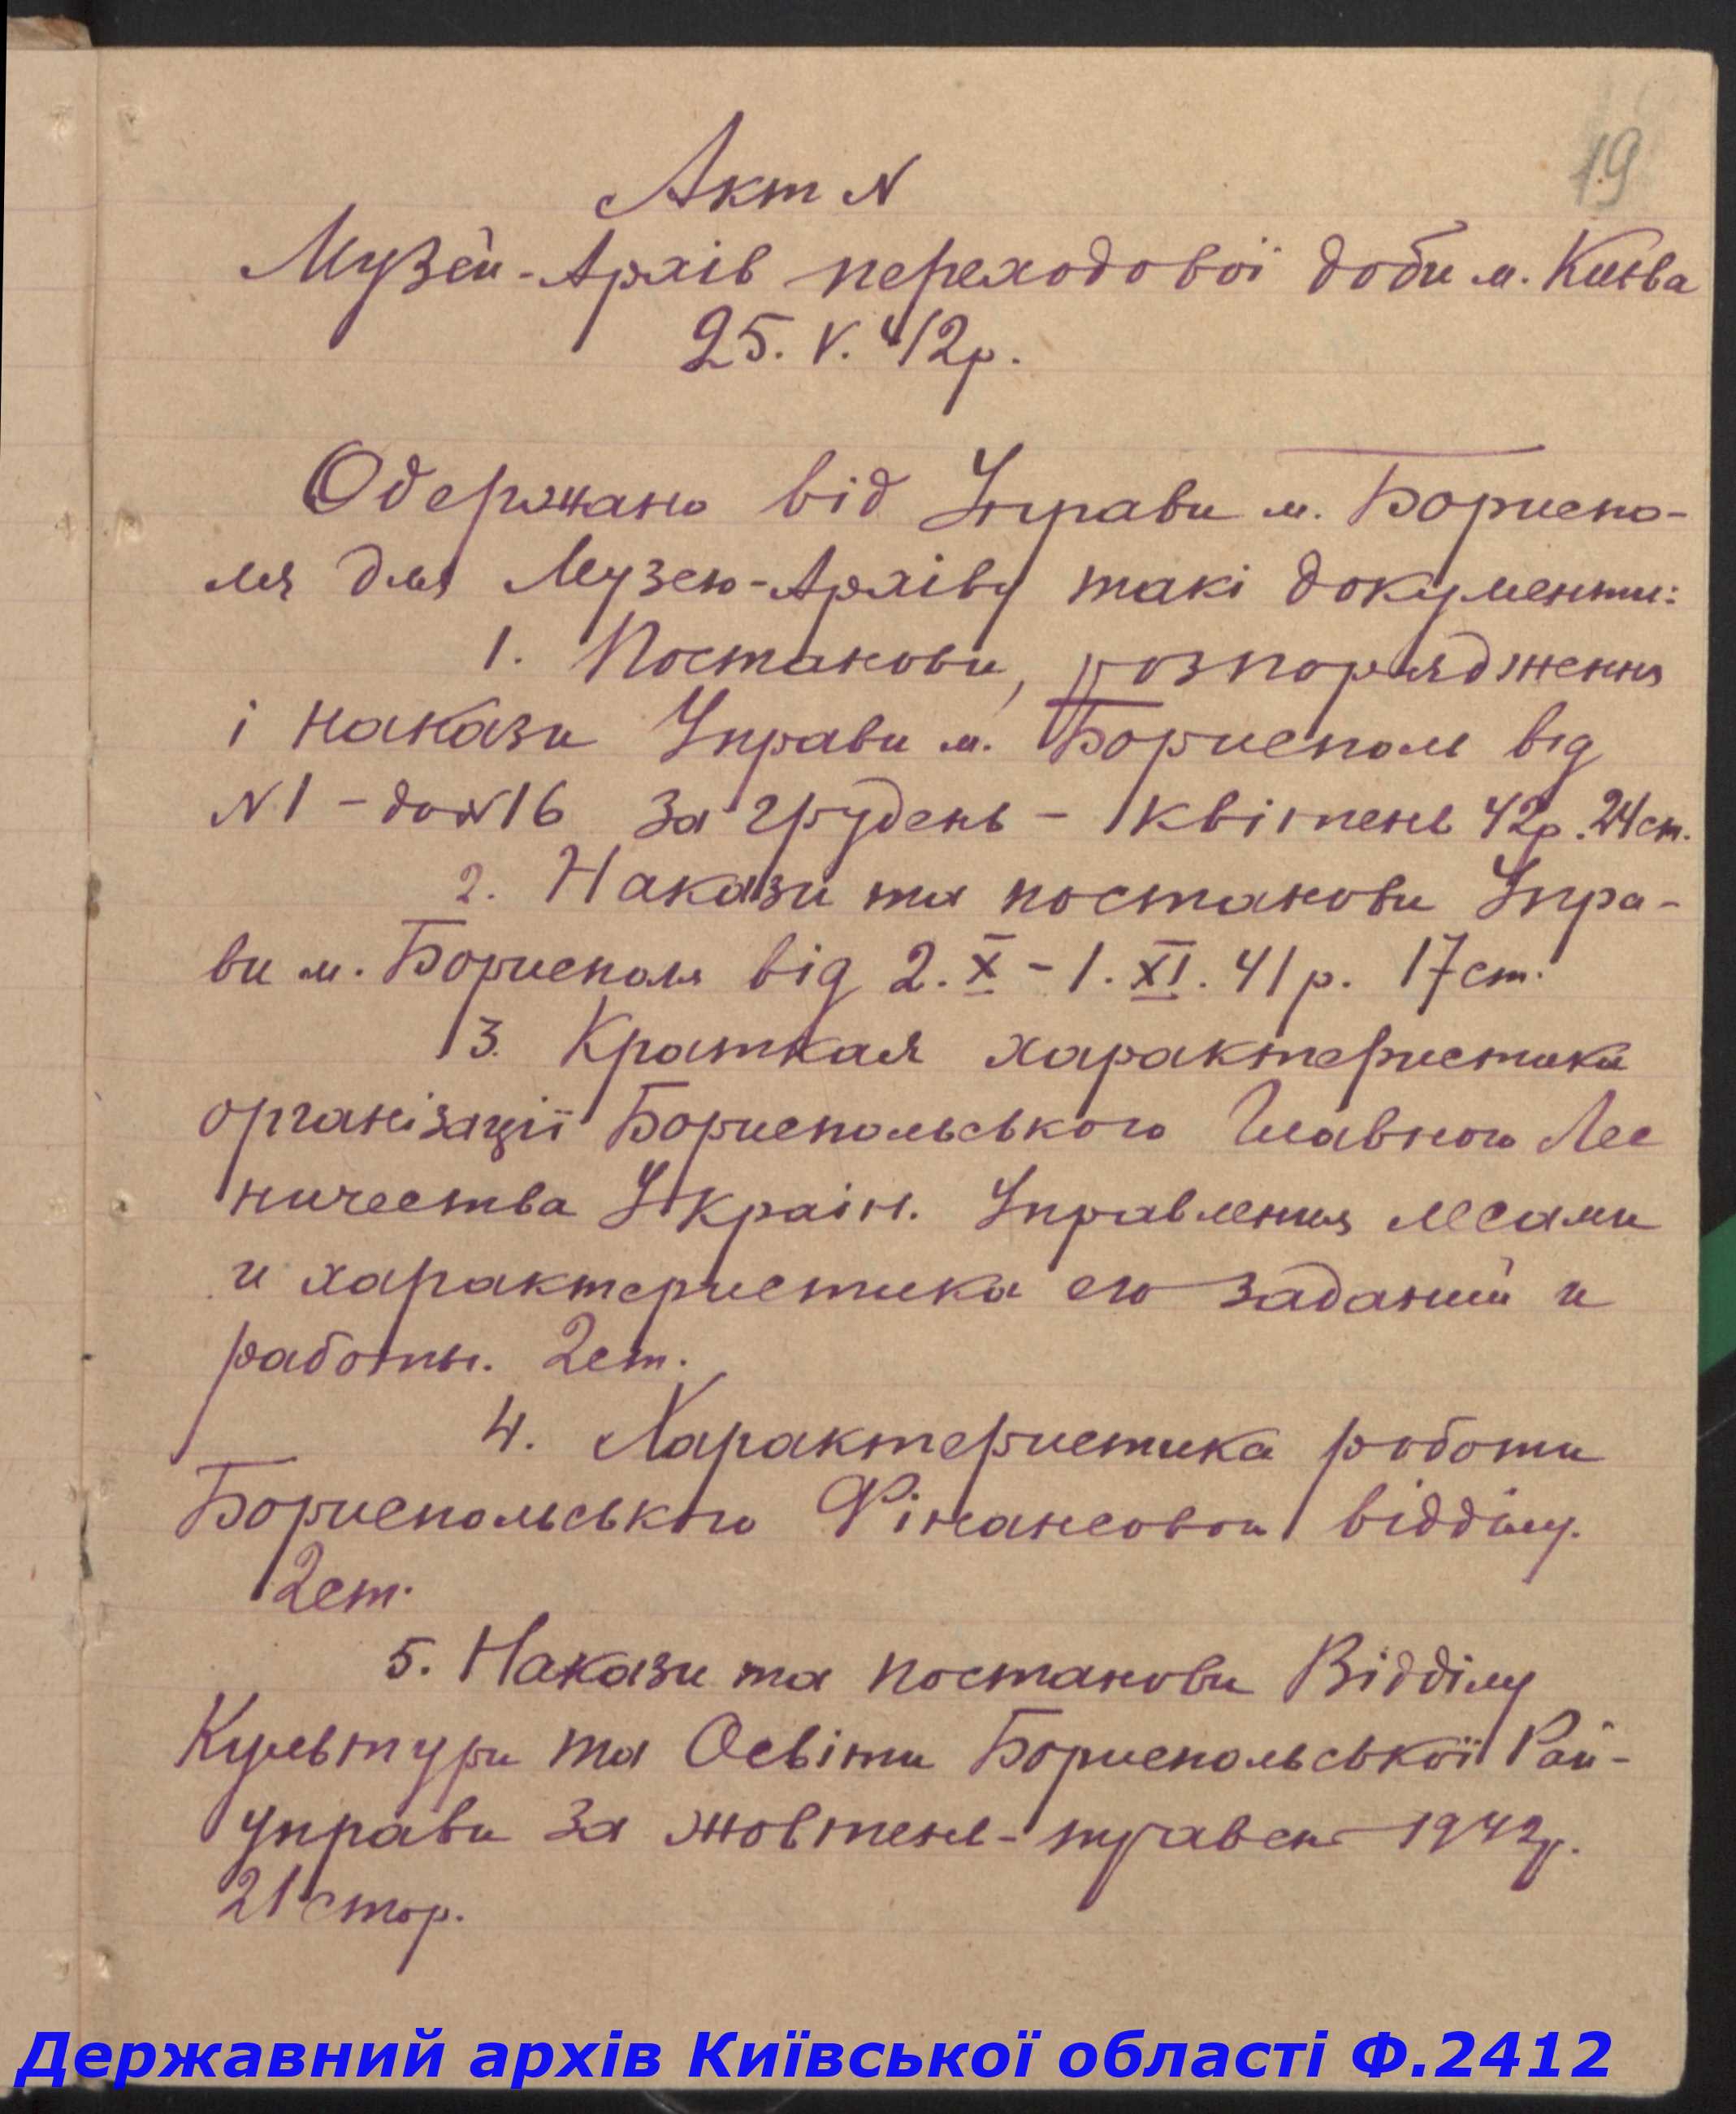 19
Акт N
Музей-Архів переходової доби м. Києва
25. V. 42р.
Одержано від Управи м. Бориспо-
ля для Музею-Архіву такі документи:
1. Постанови, розпорядження
і накази Управи м. Борисполя від
N1 - до N16 за грудень - квітень 42р. 24ст.
2. Накази та постанови Упра-
ви м. Борисполя від 2.X - 1.XI. 41р. 17ст.
3. Краткая характеристика
організації Бориспольського Главного Лес
ничества Україн. Управления лесами
и характеристика его заданий и
работы. 2ст.
4. Характеристика роботи
Бориспольського Фінансового відділу.
2ст.
5. Накази та постанови Відділу
Культури та Освіти Бориспольської Рай-
управи за жовтень-травень 1942р.
21 стор.
Державний архів Київської області Ф.2412